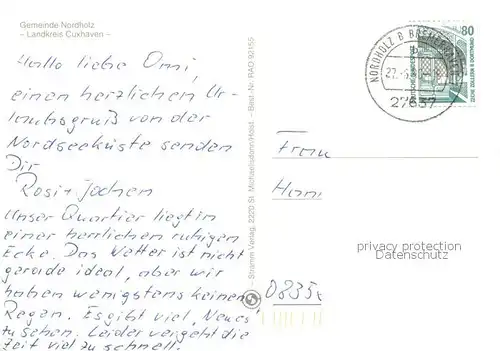 Gemeinde Nordholz
– Landkreis Cuxhaven –
Hallo liebe Omi,
einen herzlichen Ur-
laubsgruß von der
Nordseeküste senden
Dir
Rosi + Jochen
Unser Quartier liegt in
einer herrlichen ruhigen
Ecke. Das Wetter ist nicht
gerade ideal, aber wir
haben wenigstens keinen
Regen. Es gibt viel „Neues“
zu sehen. Leider vergeht die
Zeit viel zu schnell.
Stramm Verlag, 2220 St. Michaelisdonn/Holst. – Best.-Nr. RAD 92155
NORDHOLZ B BREMERHAVEN
27637
80
DEUTSCHE BUNDESPOST
ZECHE ZOLLERN II DORTMUND
Frau
privacy protection
Datenschutz